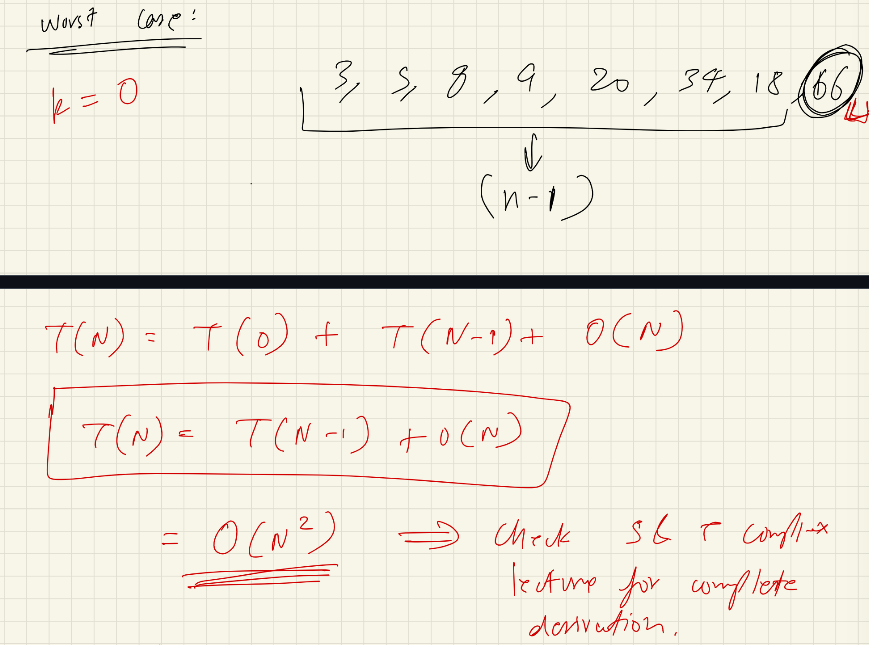 Worst Case:
k = 0
3, 5, 8, 9, 20, 34, 18, 66
(n-1)
T(N) = T(0) + T(N-1) + O(N)
T(N) = T(N-1) + O(N)
= O(N²) ⟹ Check S & T complex
lecture for complete
derivation.